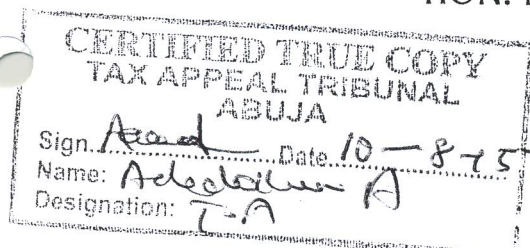 HON.
CERTIFIED TRUE COPY
TAX APPEAL TRIBUNAL
ABUJA
Sign. Date. 10-8-15
Name: A
Designation: T.A